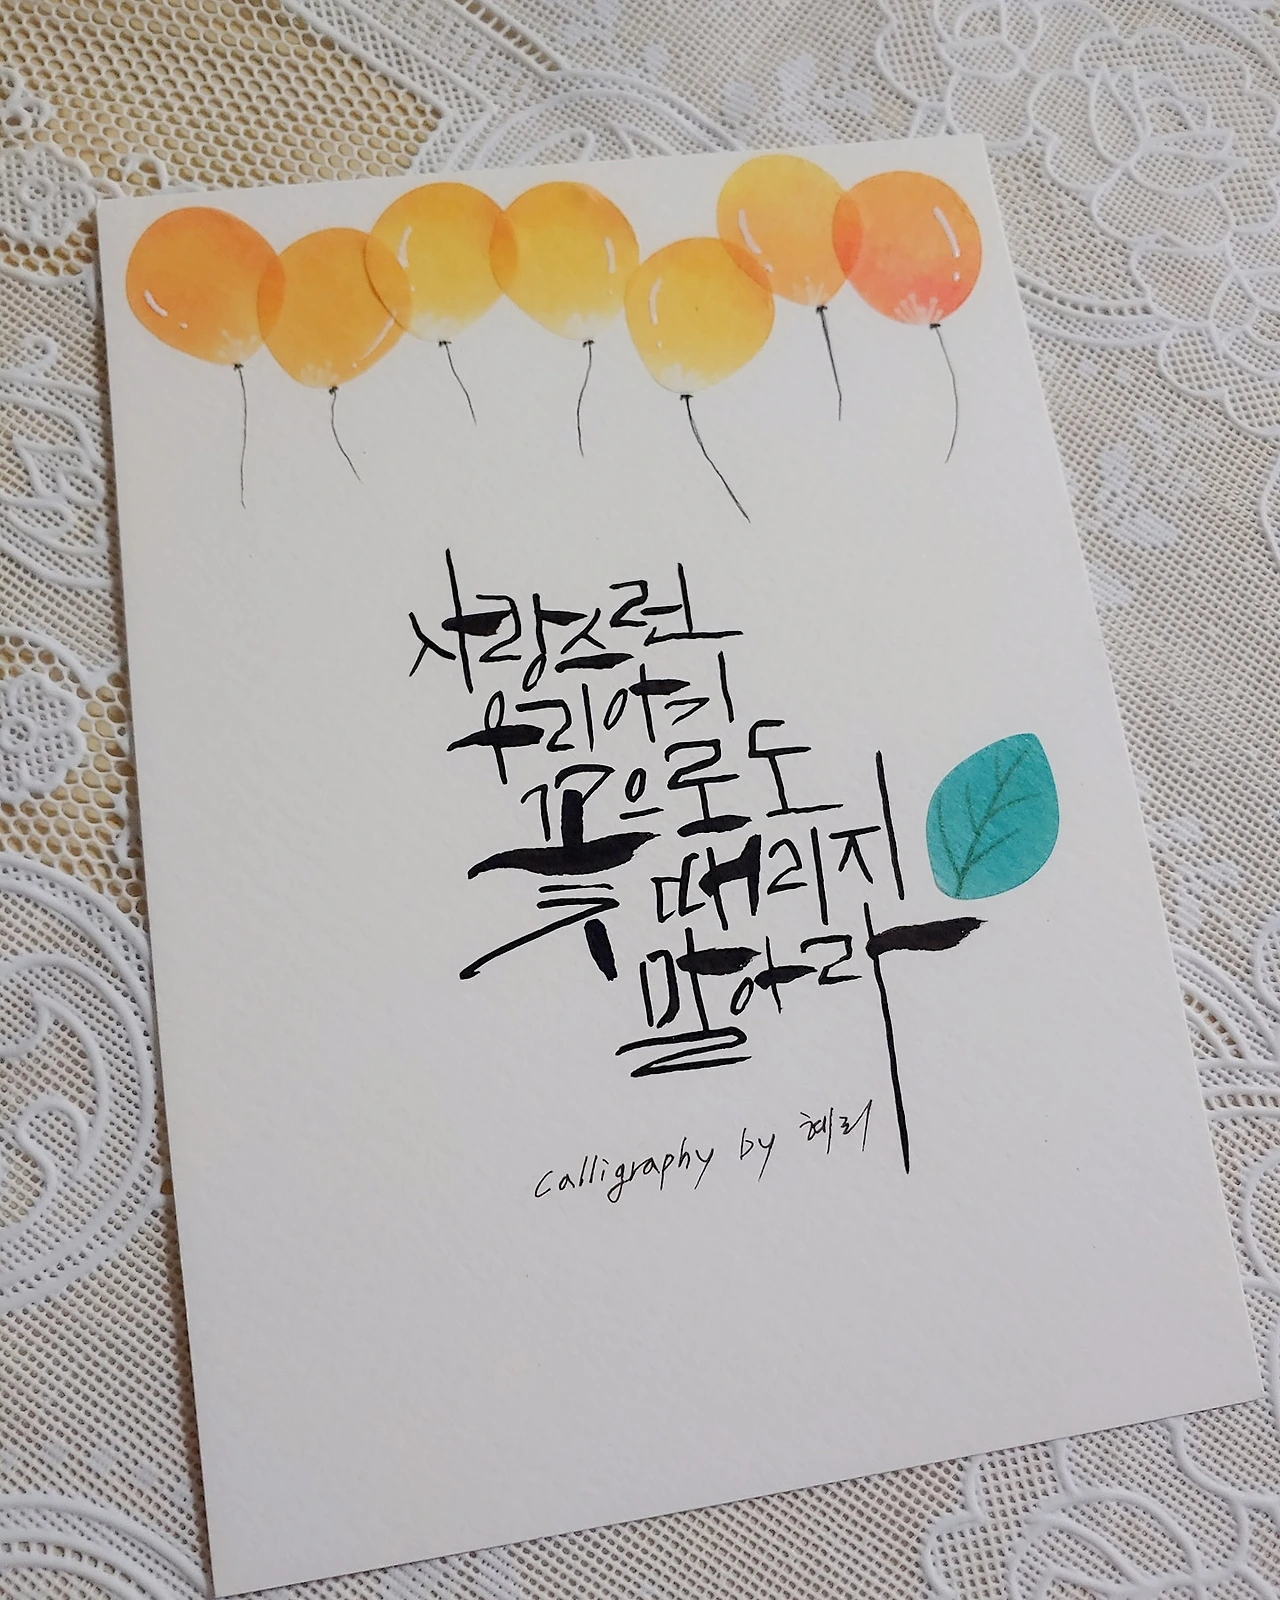 사랑스런
우리아기
꽃으로도
때리지
말아라
calligraphy by 혜리